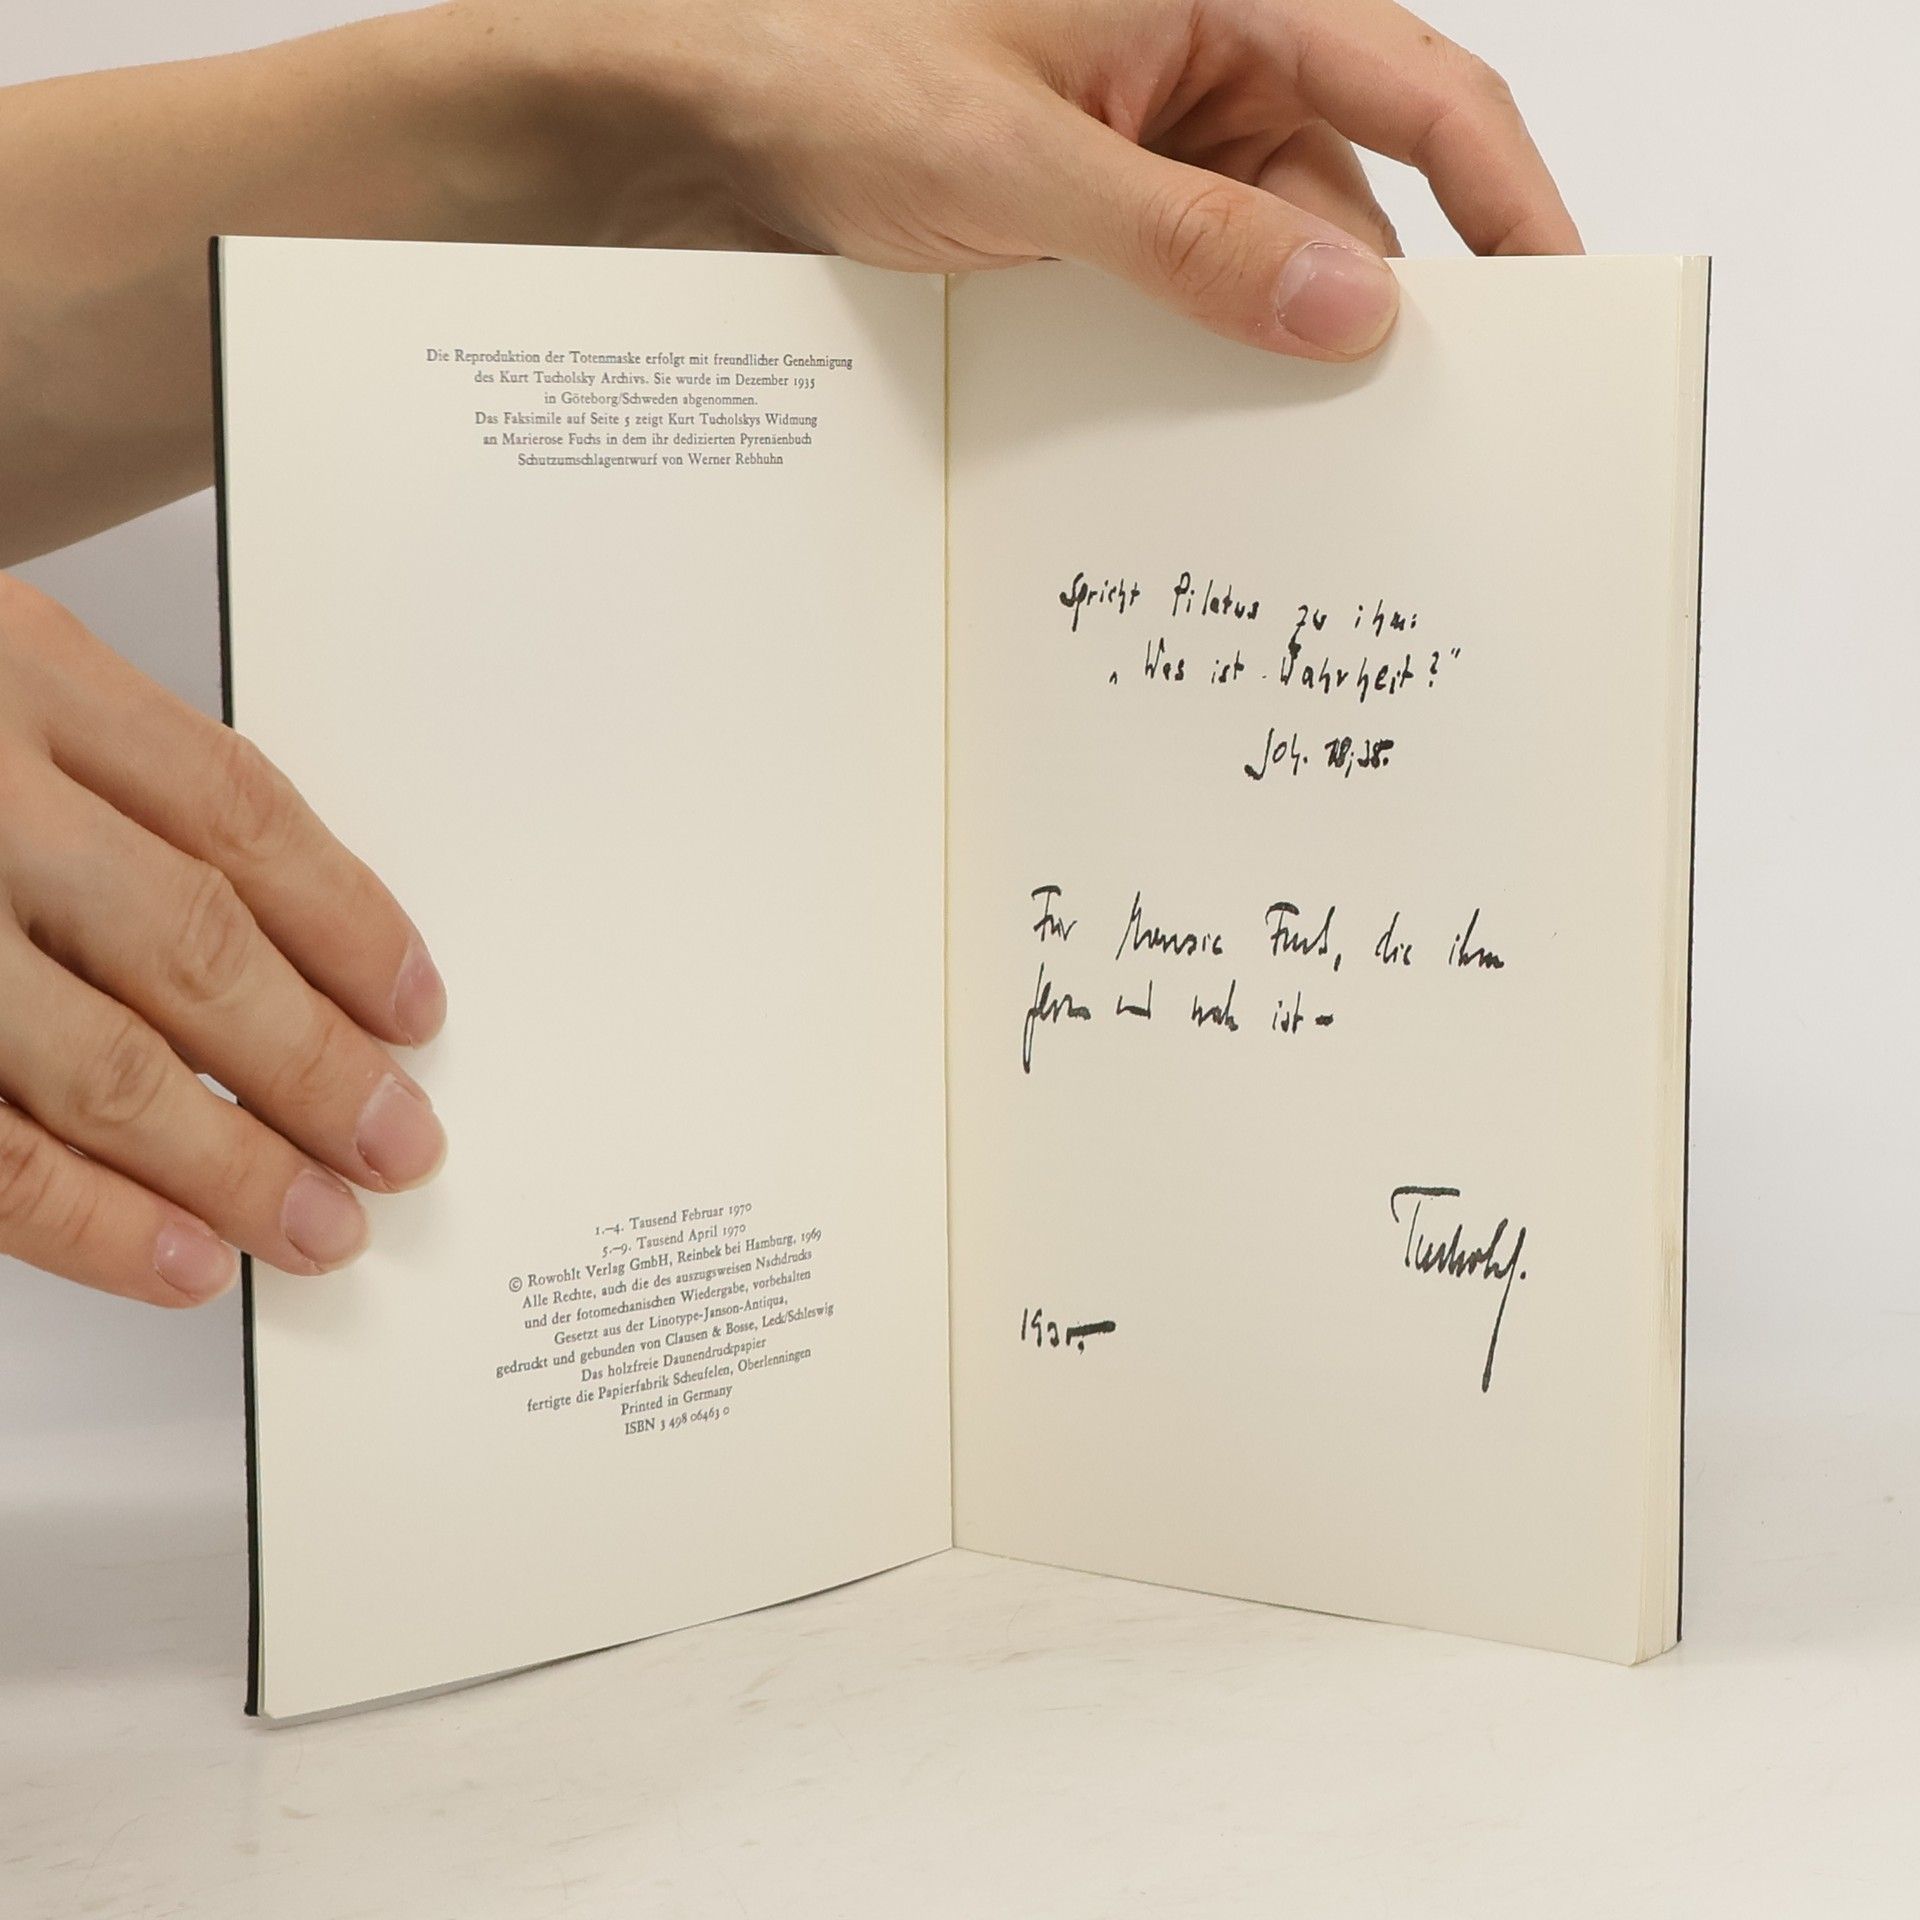 Die Reproduktion der Totenmaske erfolgt mit freundlicher Genehmigung
des Kurt Tucholsky Archivs. Sie wurde im Dezember 1935
in Göteborg/Schweden abgenommen.
Das Faksimile auf Seite 5 zeigt Kurt Tucholskys Widmung
an Marierose Fuchs in dem ihr dedizierten Pyrenäenbuch
Schutzumschlagentwurf von Werner Rebhuhn
1.–4. Tausend Februar 1970
5.–9. Tausend April 1970
© Rowohlt Verlag GmbH, Reinbek bei Hamburg, 1969
Alle Rechte, auch die des auszugsweisen Nachdrucks
und der fotomechanischen Wiedergabe, vorbehalten
Gesetzt aus der Linotype-Janson-Antiqua,
gedruckt und gebunden von Clausen & Bosse, Leck/Schleswig
Das holzfreie Daunendruckpapier
fertigte die Papierfabrik Scheufelen, Oberlenningen
Printed in Germany
ISBN 3 498 06463 0
Spricht Pilatus zu ihm:
„Was ist Wahrheit?"
Joh. 18,38.
Für Fuchs, die ihm
fern und nah ist –
Tucholsky.